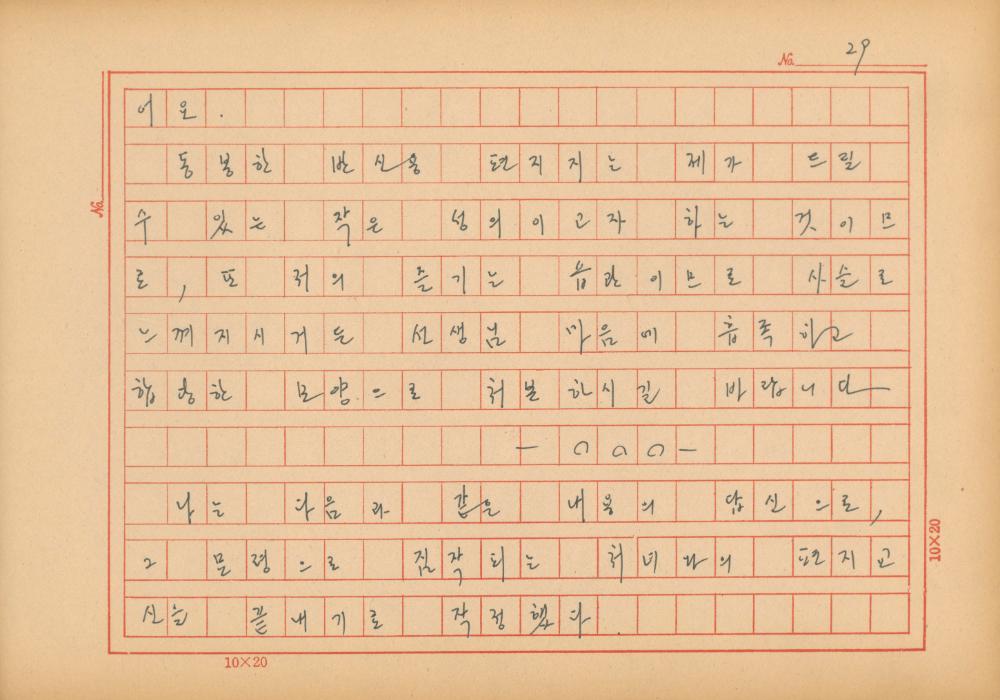 No. 29
어요.
동봉한 반신용 편지지는 제가 드릴
수 있는 작은 성의이고자 하는 것이므
로, 또 저의 즐기는 습관이므로 사슬로
느껴지시거든 선생님 마음에 흡족하고
합당한 모양으로 처분하시길 바랍니다
— ∩∩∩ —
나는 다음과 같은 내용의 답신으로,
그 묘령으로 짐작되는 처녀와의 편지고
신을 끝내기로 작정했다.
No.
10×20
10×20